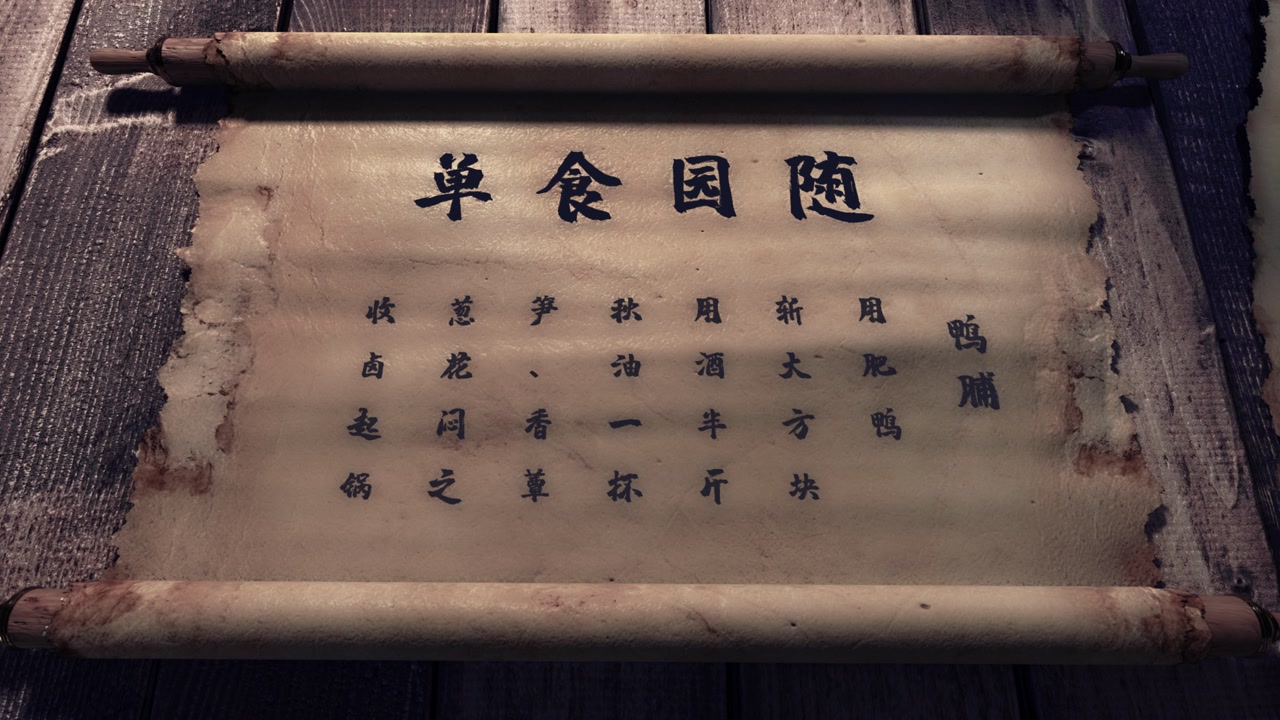 随园食单
鸭脯
用肥鸭
斩大方块
用酒半斤
秋油一杯
笋、香蕈
葱花闷之
收卤起锅